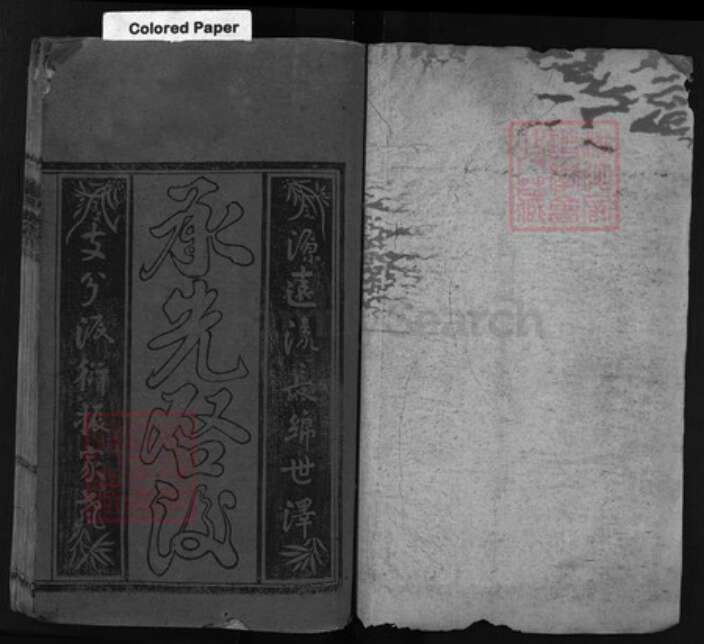 Colored Paper
源遠流長綿世澤
承先啓後
支分派衍振家聲
Search
藏